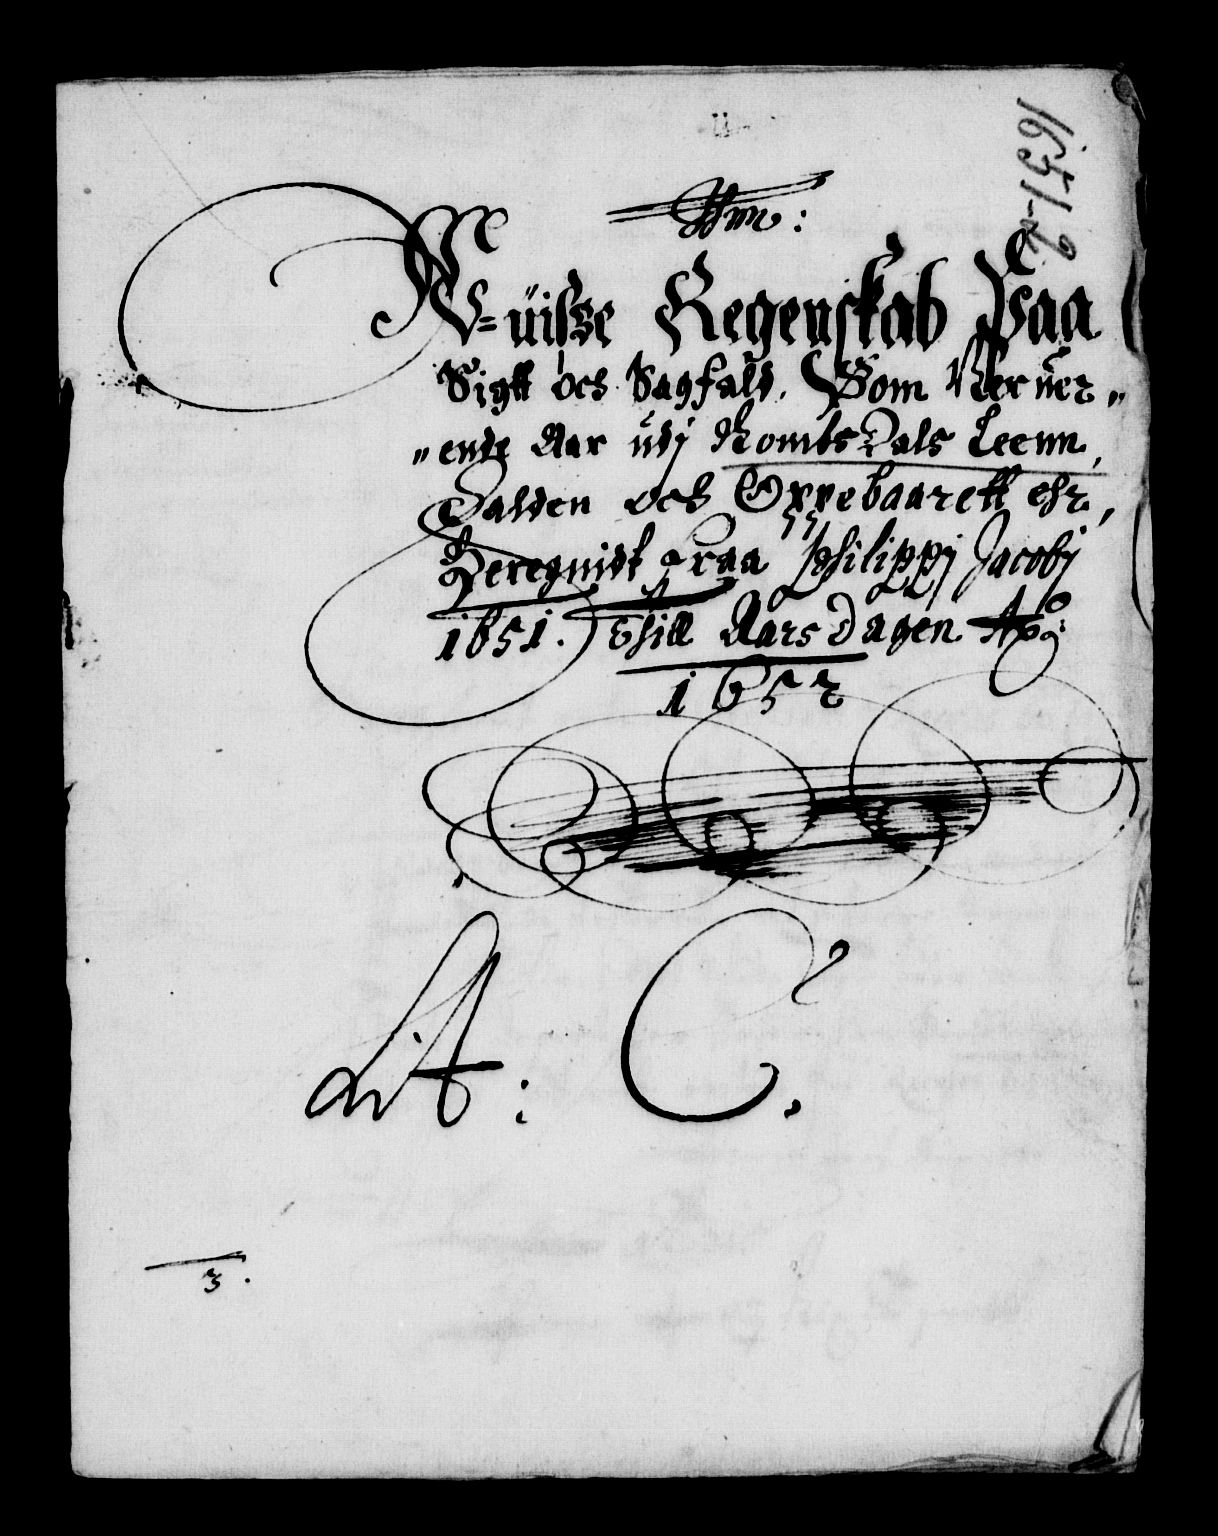 1651-2
V=üisze Regenskab Paa
Sigtt och Sagfald, Som Neruer„
„ende Aar üdj RombsDals Leenn,
Falden och Oppebaarett ehr,
Beregnidt Fraa Philippj Jacobj
1651. Thill Aars Dagen Aō:
1652
Lit: C.
3.